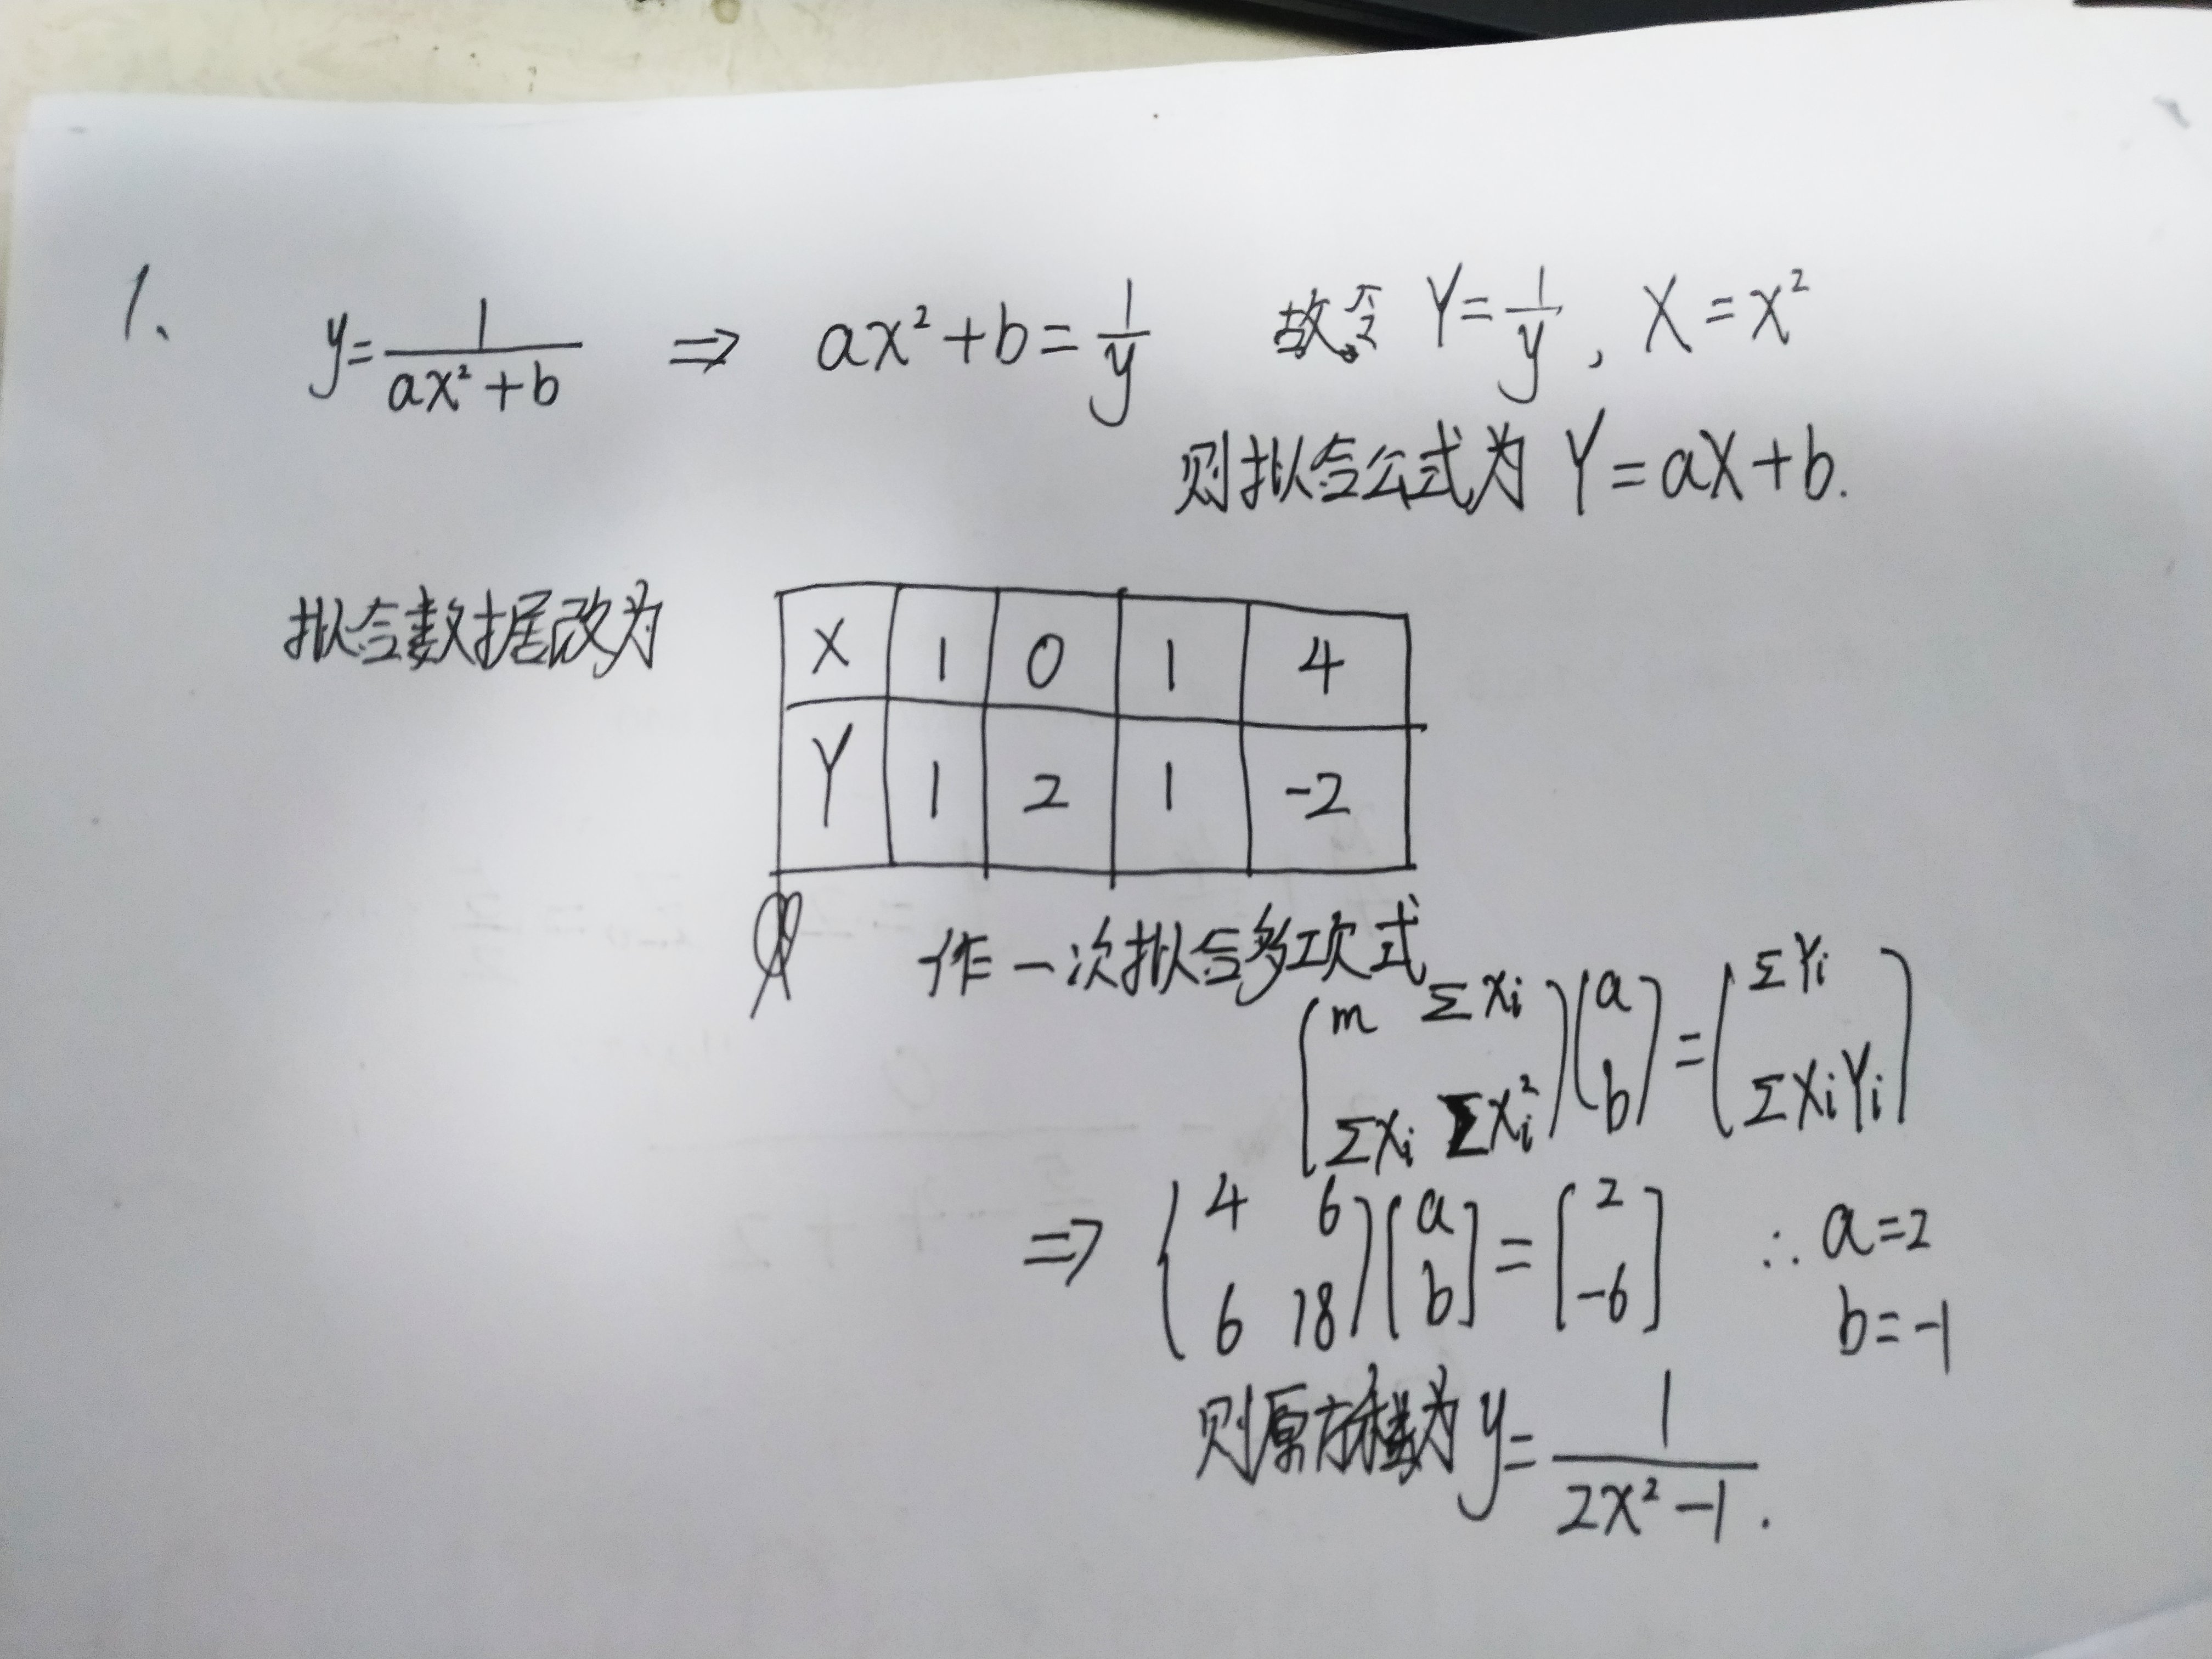 1、 y=1/(ax²+b) ⇒ ax²+b=1/y 故令 Y=1/y, X=x²
则拟合公式为 Y=aX+b.
拟合数据改为
X 1 0 1 4
Y 1 2 1 -2
作一次拟合多项式
(m ΣXi; ΣXi ΣXi²)(a; b)=(ΣYi; ΣXiYi)
⇒ (4 6; 6 18)[a; b]=[2; -6] ∴ a=2
b=-1
则原方程为 y=1/(2x²-1).